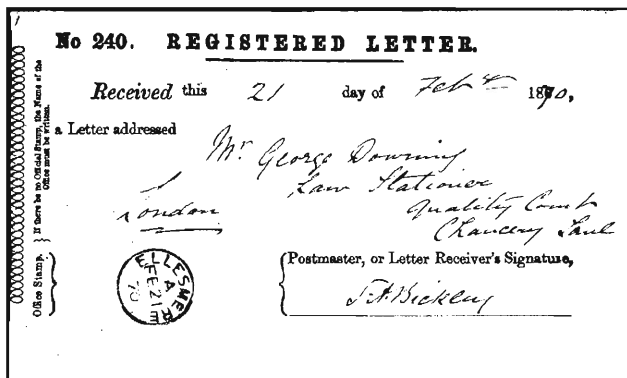 No 240. REGISTERED LETTER.
Received this 21 day of Feby 1870,
a Letter addressed
Mr. George Downing
Law Stationer
Quality Court
Chancery Lane
London
If there be no Official Stamp, the Name of the Office must be written.
Office Stamp.
ELLESMERE
A
FE 21
70
Postmaster, or Letter Receiver's Signature,
J. A. Bickley